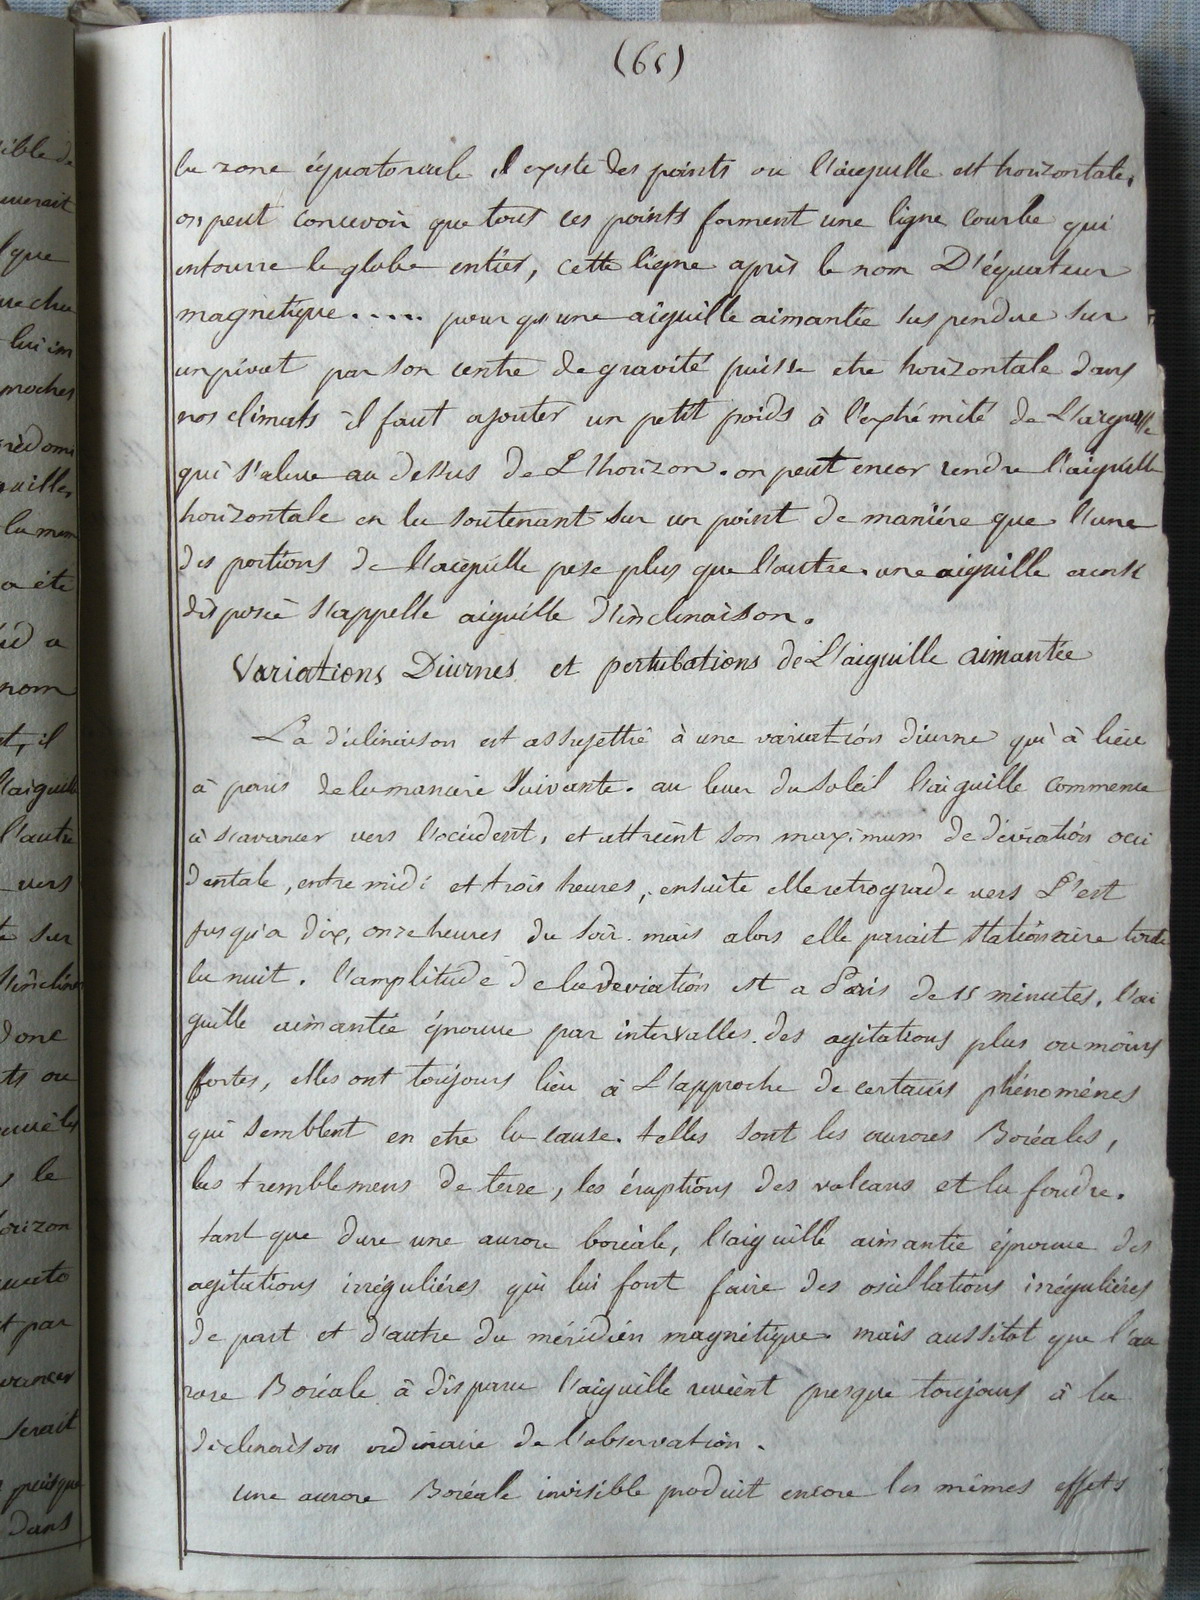 (65)
la zone équatoriale il existe des points ou l'aiguille est horizontale,
on peut concevoir que tous ces points forment une ligne courbe qui
entoure le globe entier, cette ligne apris le nom D'équateur
magnetique..... pour qu'une aiguille aimantée suspendue sur
un pivot par son centre de gravité puisse etre horizontale dans
nos climats il faut ajouter un petit poids à l'extrémité de L'aiguille
qui s'aleve au dessus de L'horizon. on peut encor rendre l'aiguille
horizontale en la soutenant sur un point de maniére que l'une
des portions de l'aiguille pese plus que l'autre. une aiguille ainsi
disposée s'appelle aiguille d'inclinaison.
Variations Diurnes et pertubations de L'aiguille aimantée
La déclinaison est assujettie à une variation diurne qui à lieu
à paris de la maniere suivante. au lever du soleil l'aiguille commence
à s'avancer vers l'occident, et atteint son maximum de déviation occi
dentale, entre midi et trois heures, ensuite elle retrograde vers L'est
jusqu'a dix, onze heures du soir. mais alors elle parait stationaire toute
la nuit. l'amplitude de la deviation est a Paris de 15 minutes. l'ai
guille aimantée éprouve par intervalles des agitations plus ou moins
fortes, elles ont toujours lieu à L'approche de certains phénoménes
qui semblent en etre la cause. telles sont les aurores Boréales,
les tremblemens de terre, les éruptions des volcans et la foudre.
tant que dure une aurore boréale, l'aiguille aimantée éprouve des
agitations irréguliéres qui lui font faire des oscillations irréguliéres
de part et d'autre du méridien magnétique. mais aussitot que l'au
rore Boréale à disparu l'aiguille revient presque toujours à la
déclinaison ordinaire de l'observation.
une aurore Boréale invisible produit encore les mêmes effets